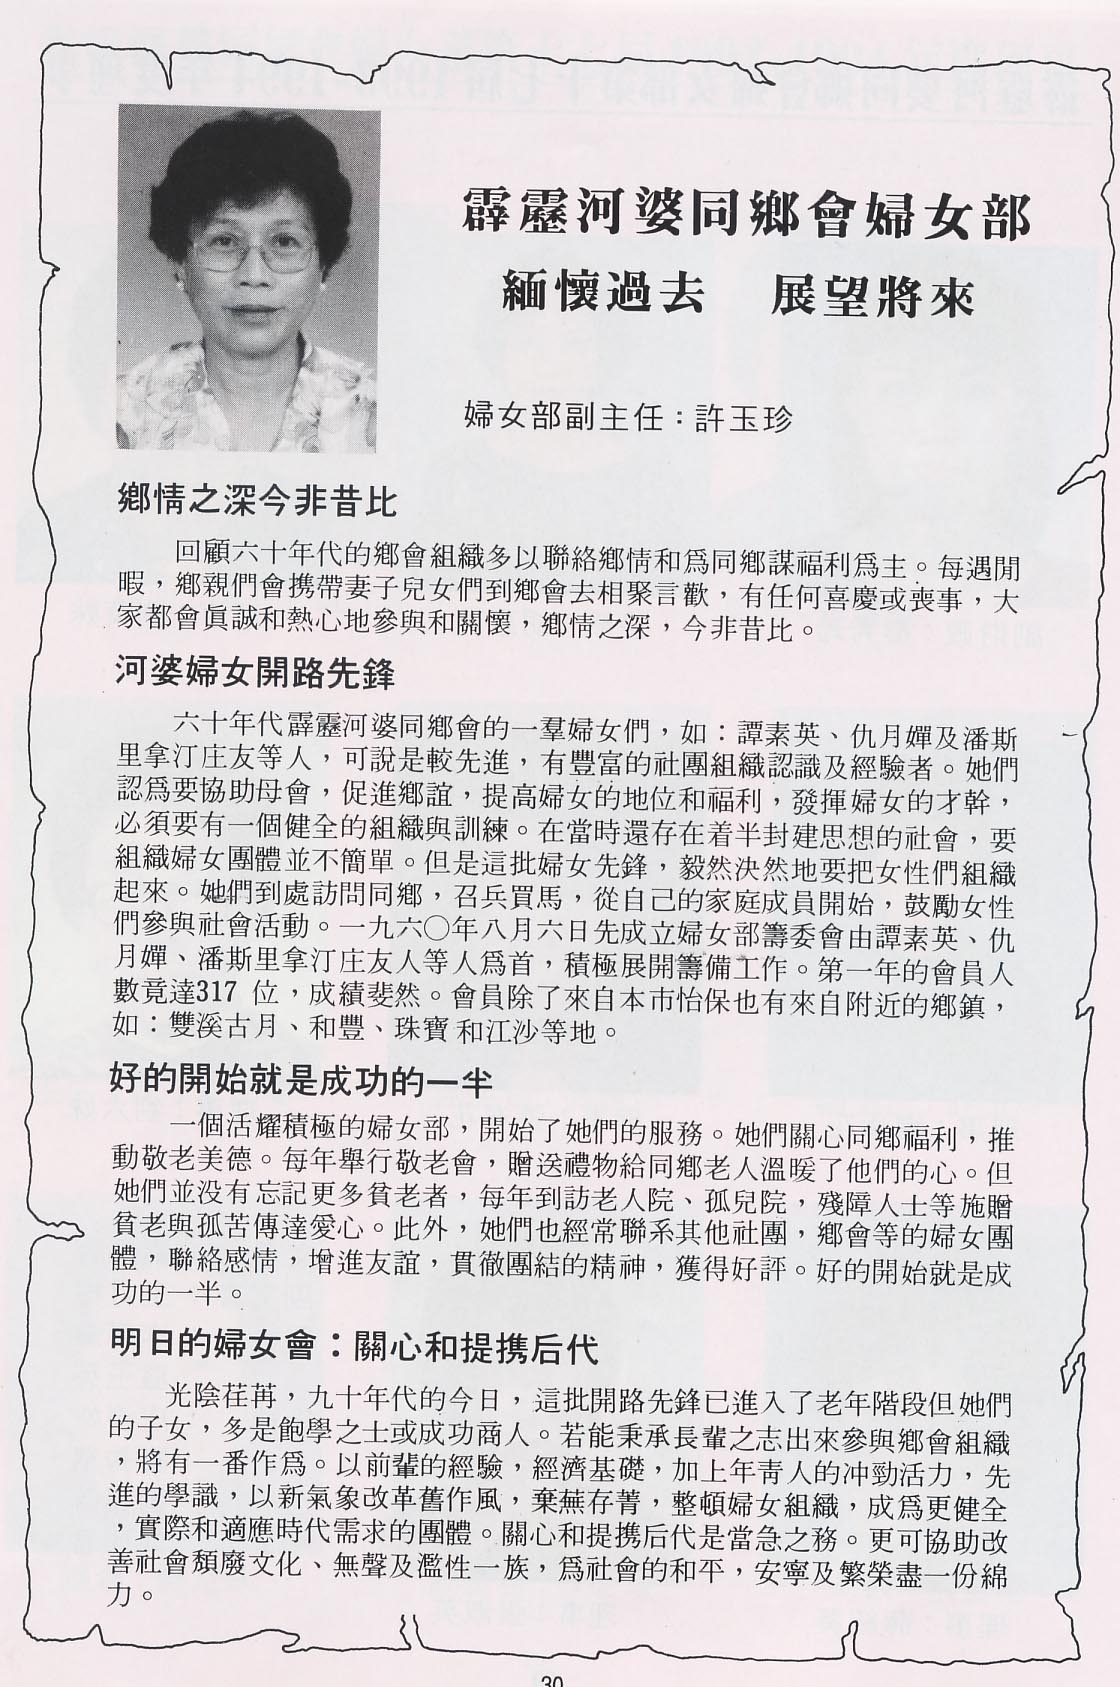 霹靂河婆同鄉會婦女部
緬懷過去　展望將來
婦女部副主任：許玉珍
鄉情之深今非昔比
回顧六十年代的鄉會組織多以聯絡鄉情和爲同鄉謀福利爲主。每遇閒
暇，鄉親們會携帶妻子兒女們到鄉會去相聚言歡，有任何喜慶或喪事，大
家都會眞誠和熱心地參與和關懷，鄉情之深，今非昔比。
河婆婦女開路先鋒
六十年代霹靂河婆同鄉會的一羣婦女們，如：譚素英、仇月嬋及潘斯
里拿汀庄友等人，可說是較先進，有豐富的社團組織認識及經驗者。她們
認爲要協助母會，促進鄉誼，提高婦女的地位和福利，發揮婦女的才幹，
必須要有一個健全的組織與訓練。在當時還存在着半封建思想的社會，要
組織婦女團體並不簡單。但是這批婦女先鋒，毅然決然地要把女性們組織
起來。她們到處訪問同鄉，召兵買馬，從自己的家庭成員開始，鼓勵女性
們參與社會活動。一九六〇年八月六日先成立婦女部籌委會由譚素英、仇
月嬋、潘斯里拿汀庄友人等人爲首，積極展開籌備工作。第一年的會員人
數竟達317 位，成績斐然。會員除了來自本市怡保也有來自附近的鄉鎮，
如：雙溪古月、和豐、珠寶和江沙等地。
好的開始就是成功的一半
一個活耀積極的婦女部，開始了她們的服務。她們關心同鄉福利，推
動敬老美德。每年舉行敬老會，贈送禮物給同鄉老人溫暖了他們的心。但
她們並没有忘記更多貧老者，每年到訪老人院、孤兒院，殘障人士等施贈
貧老與孤苦傳達愛心。此外，她們也經常聯系其他社團，鄉會等的婦女團
體，聯絡感情，增進友誼，貫徹團結的精神，獲得好評。好的開始就是成
功的一半。
明日的婦女會：關心和提携后代
光陰荏苒，九十年代的今日，這批開路先鋒已進入了老年階段但她們
的子女，多是飽學之士或成功商人。若能秉承長輩之志出來參與鄉會組織
，將有一番作爲。以前輩的經驗，經濟基礎，加上年靑人的冲勁活力，先
進的學識，以新氣象改革舊作風，棄蕪存菁，整頓婦女組織，成爲更健全
，實際和適應時代需求的團體。關心和提携后代是當急之務。更可協助改
善社會頹廢文化、無聲及濫性一族，爲社會的和平，安寧及繁榮盡一份綿
力。
30